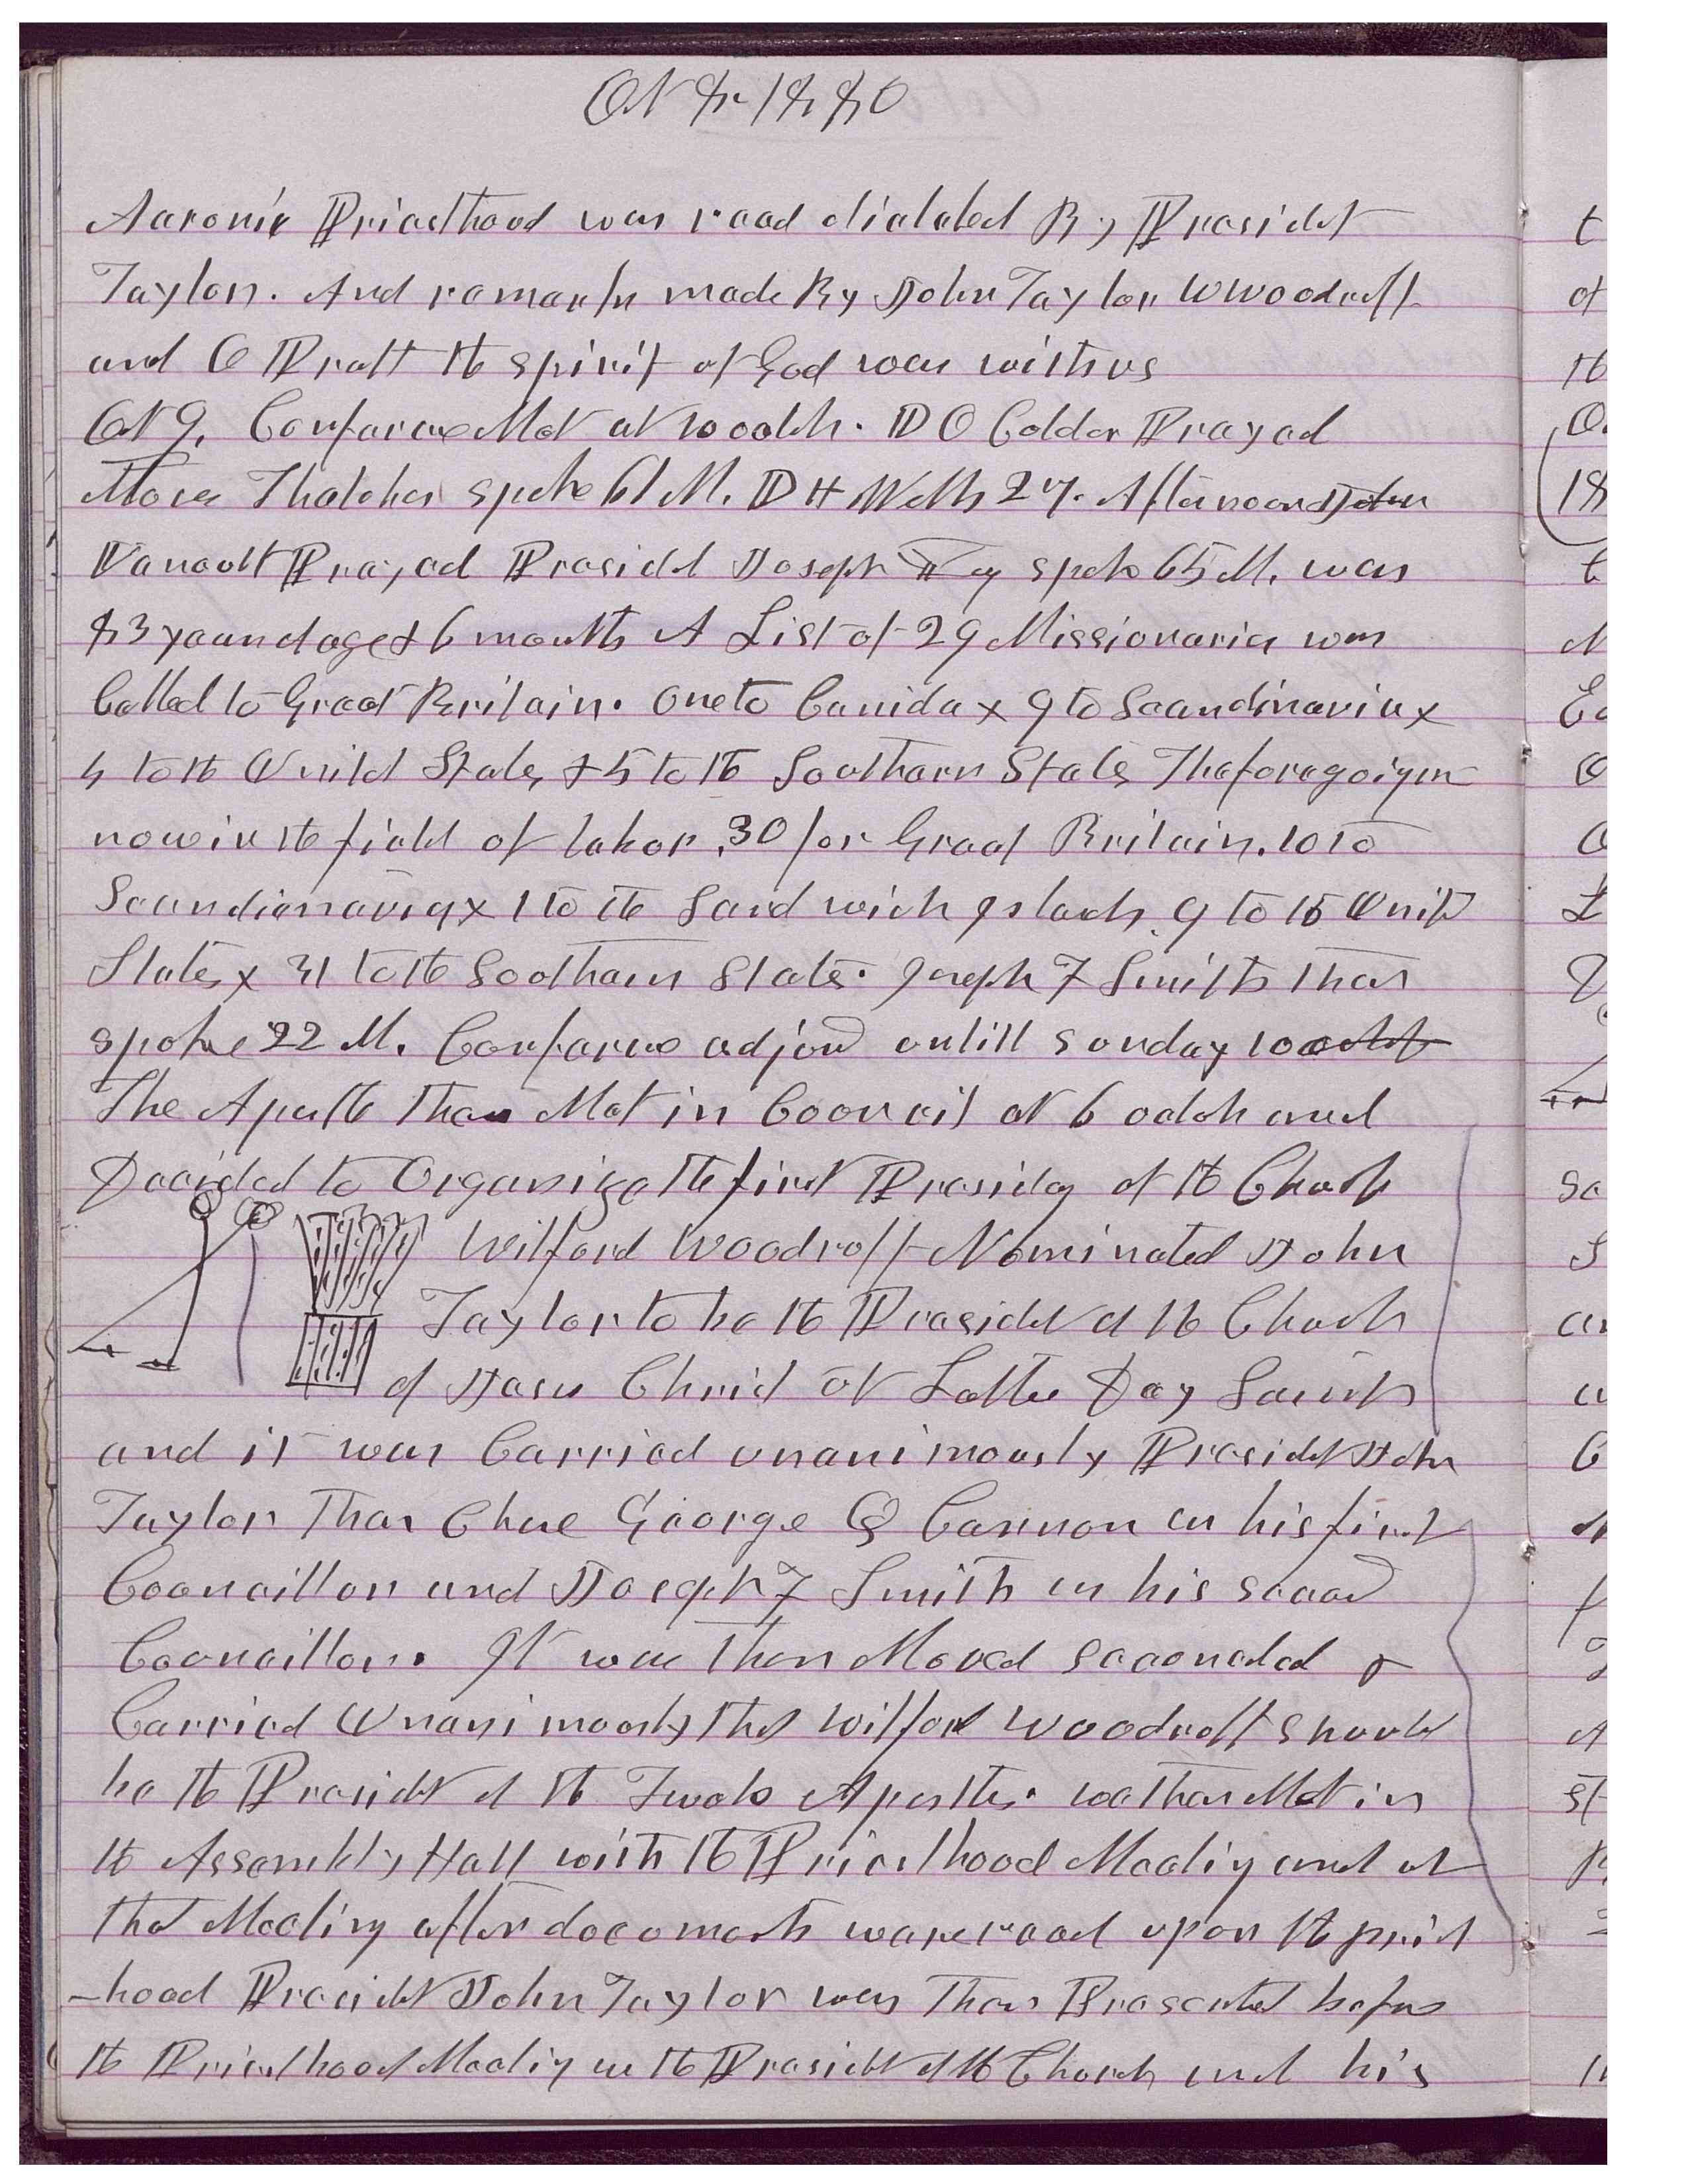 Oct 8 1880
Aaronic Priesthood was read dictated By Presidet
Taylor. And remarks made By John Taylor WWoodruff
and O Pratt the spirit of God was with us
Oct 9. Conferance Met at 10 oclok. D O Calder Prayed
Moses Thatcher spoke 61 M. D H Wells 27. Afternoon John
Vancott Prayed Presidet Joseph Young spoke 65 M. was
83 years of age & 6 months A List of 29 Missionaries was
Called to Great Britain. one to Canida & 9 to Scandinavia &
4 to the United States & 5 to the Southern States The foregoig on
now in the field of labor 30 for Great Britain. 10 to
Scandianavia & 1 to the Sandwich Islands 9 to the Unitd
States & 31 to the Southern States. Joseph F Smith then
spoke 22 M. Conferance adjod untill Sunday 10 oclok
The Apostles then Met in Council at 6 oclok and
Decided to Organize the first Presidcy of the Church
Wilford Woodruff Nominated John
Taylor to be the Presidet of the Church
of Jesus Christ of Latter Day Saints
and it was Carried unanimously Presidet John
Taylor then Chose George Q Cannon as his first
Councillor and Joseph F Smith as his secod
Councillor. It was then Moved seconded &
Carried Unanimously that Wilford Woodruff should
be the Presidet of the Twelve Apostles. we then Met in
the Assembly Hall with the Priesthood Meetig and at
that Meeting after documets were read upon the priest
-hood Presidet John Taylor was then Presented before
the Priesthood Meetig as the Presidet of the Church and his